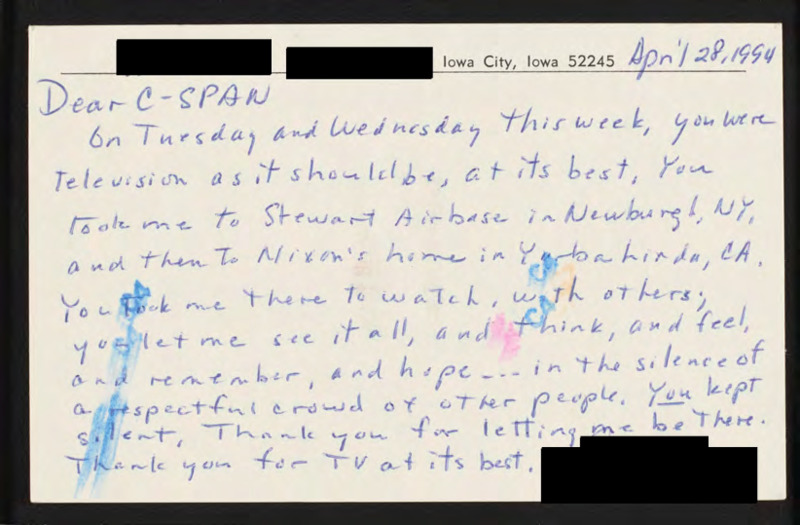 Iowa City, Iowa 52245 April 28, 1994
Dear C-SPAN
On Tuesday and Wednesday this week, you were
television as it should be, at its best. You
took me to Stewart Airbase in Newburgh, NY,
and then to Nixon's home in Yorba Linda, CA.
You took me there to watch, with others;
you let me see it all, and think, and feel,
and remember, and hope --- in the silence of
a respectful crowd of other people. You kept
silent. Thank you for letting me be there.
Thank you for TV at its best.